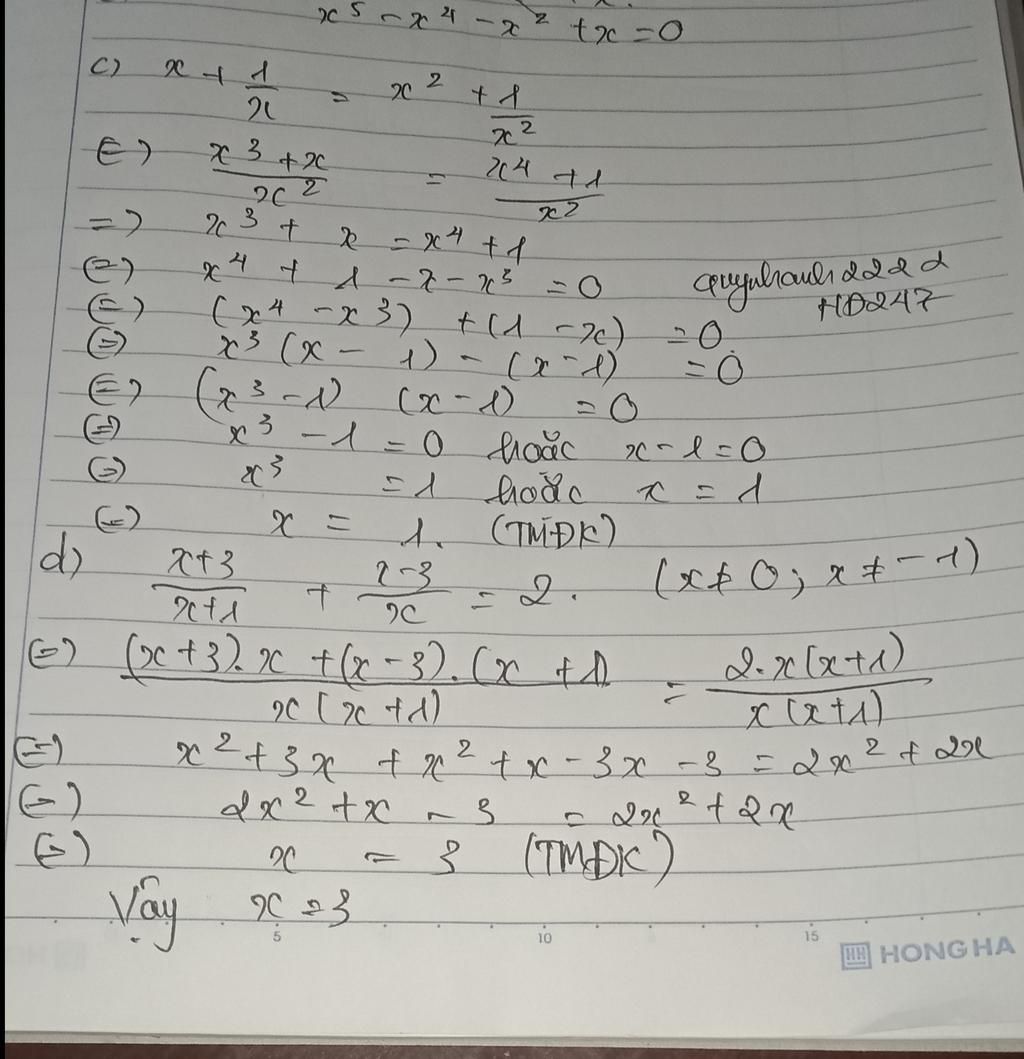 x⁵ - x⁴ - x² + x = 0
c) x + 1/x = x² + 1/x²
(=) (x³ + x)/x² = (x⁴ + 1)/x²
=) x³ + x = x⁴ + 1
(=) x⁴ + 1 - x - x³ = 0
(=) (x⁴ - x³) + (1 - x) = 0
(=) x³ (x - 1) - (x - 1) = 0
(=) (x³ - 1) (x - 1) = 0
(=) x³ - 1 = 0 hoặc x - 1 = 0
(=) x³ = 1 hoặc x = 1
(=) x = 1. (TMĐK)
2222
HD247
d) (x+3)/(x+1) + (x-3)/x = 2. (x ≠ 0; x ≠ -1)
(=) ((x+3).x + (x-3).(x+1))/(x(x+1)) = (2.x(x+1))/(x(x+1))
(=) x² + 3x + x² + x - 3x - 3 = 2x² + 2x
(=) 2x² + x - 3 = 2x² + 2x
(=) x = 3 (TMĐK)
Vậy x = 3
5 10 15
HH HONG HA